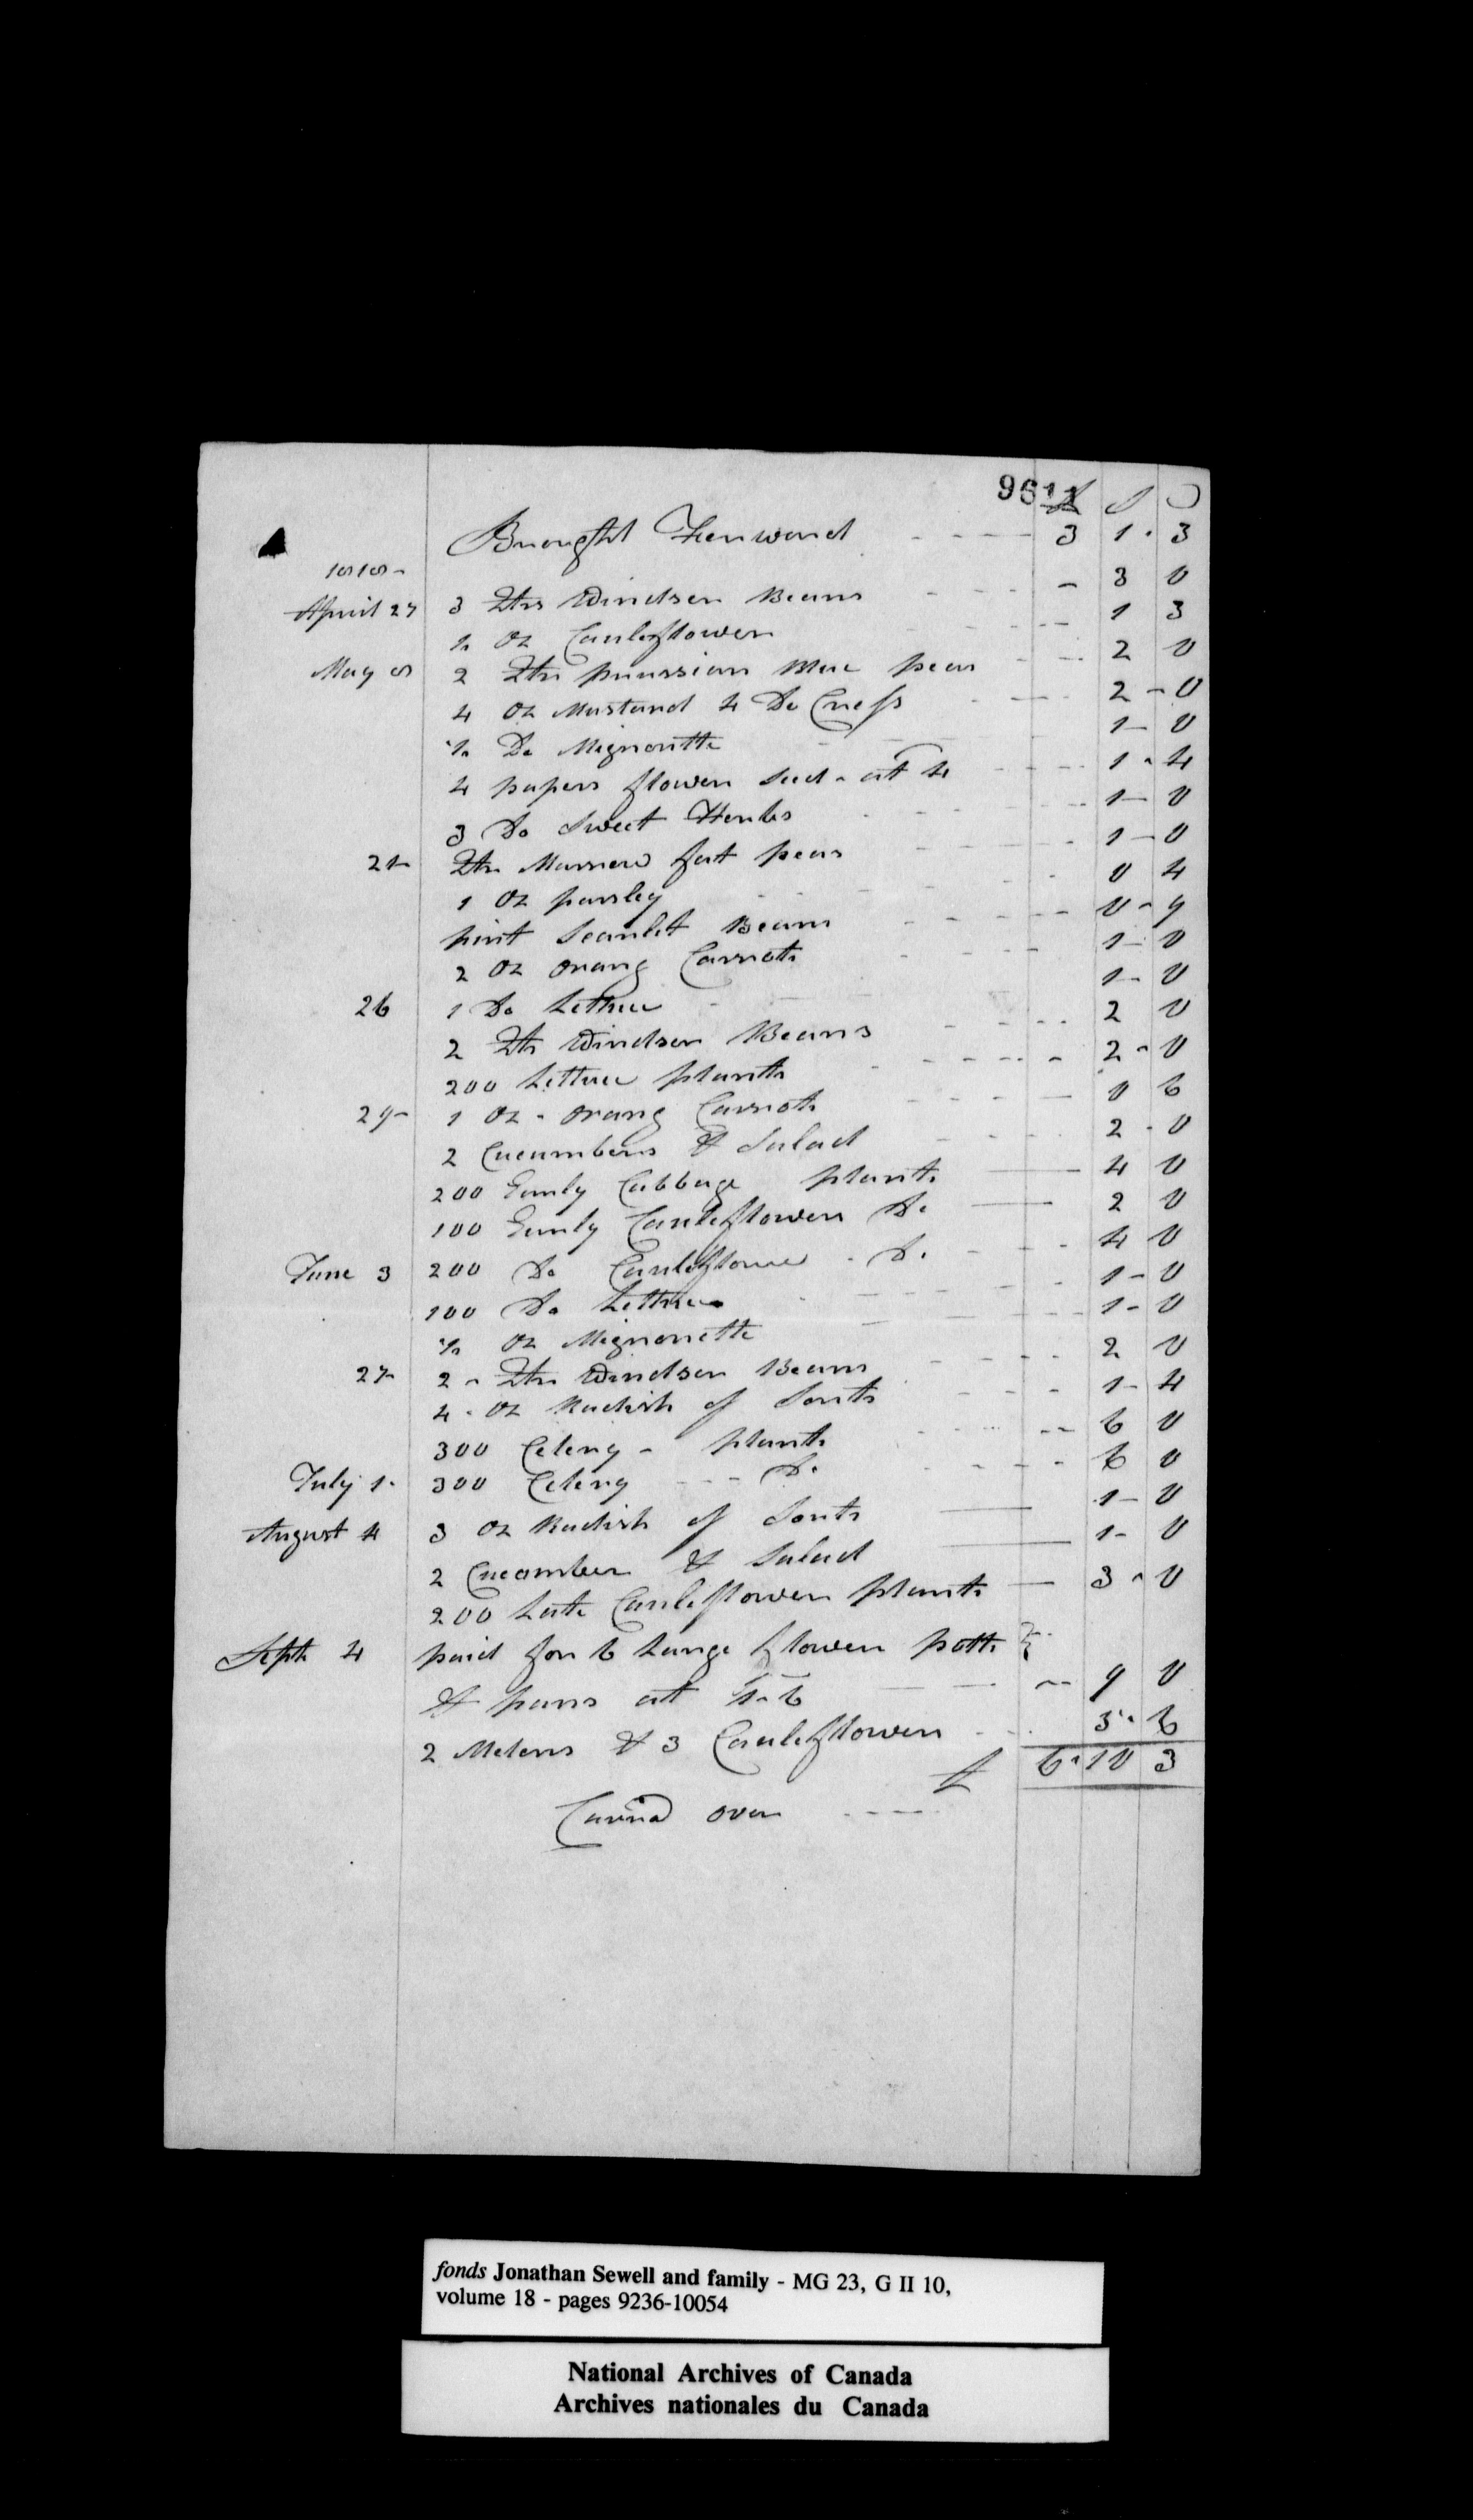 9611
£ S D
Brought Forward - - - - 3 1 · 3
1818 -
April 27 3 Qts Windsor Beans - - - - 3 0
½ oz Cauleflower - - - 1 3
May 8 2 Qts prussian Blue peas - - - 2 0
4 oz Mustard 4 Do Cress - - - 2 - 0
½ Do Mignontte - - 1 - 0
4 papers flower seed - at 4 - - - 1 - 4
3 Do Sweet Herbs - - - - 1 - 0
21 - Qts Marrow fat peas - - - - 1 - 0
1 oz parsley - - - - 0 4
pint Scarlet Beans - - - - 0 - 9
2 oz orang Carrots - - - 1 - 0
26 1 Do Lettuce - - 1 - 0
2 Qts Windsor Beans - - - - 2 0
200 Lettuce plants - - - - 2 - 0
29 - 1 oz - orang Carrots - - - - 0 6
2 Cucumbers & Salad - - - 2 - 0
200 Early Cabbage plants — 4 0
100 Early Cauleflower Do — 2 0
June 3 200 Do Cauleflower - Do - - - 4 0
100 Do Lettuce - - - - 1 - 0
½ oz Mignonette - - - - 1 - 0
27 - 2 - Qts Windsor Beans - - - - 2 0
4 - oz Radish of Sorts - - - 1 - 4
300 Celery - plants - - - - 6 0
July 1 - 300 Celery - - - Do - - - - 6 0
August 4 3 oz Radish of Sorts — 1 - 0
2 Cucomber & Salad — 1 - 0
200 Late Cauleflower plants — 3 - 0
Septr 4 paid for 6 Large flower potts }
& pans at 1 - 6 - - 9 0
2 Melons & 3 Cauleflower - - 3 - 6
£ 6 - 10 3
Carrid over - - - -
fonds Jonathan Sewell and family - MG 23, G II 10,
volume 18 - pages 9236-10054
National Archives of Canada
Archives nationales du Canada